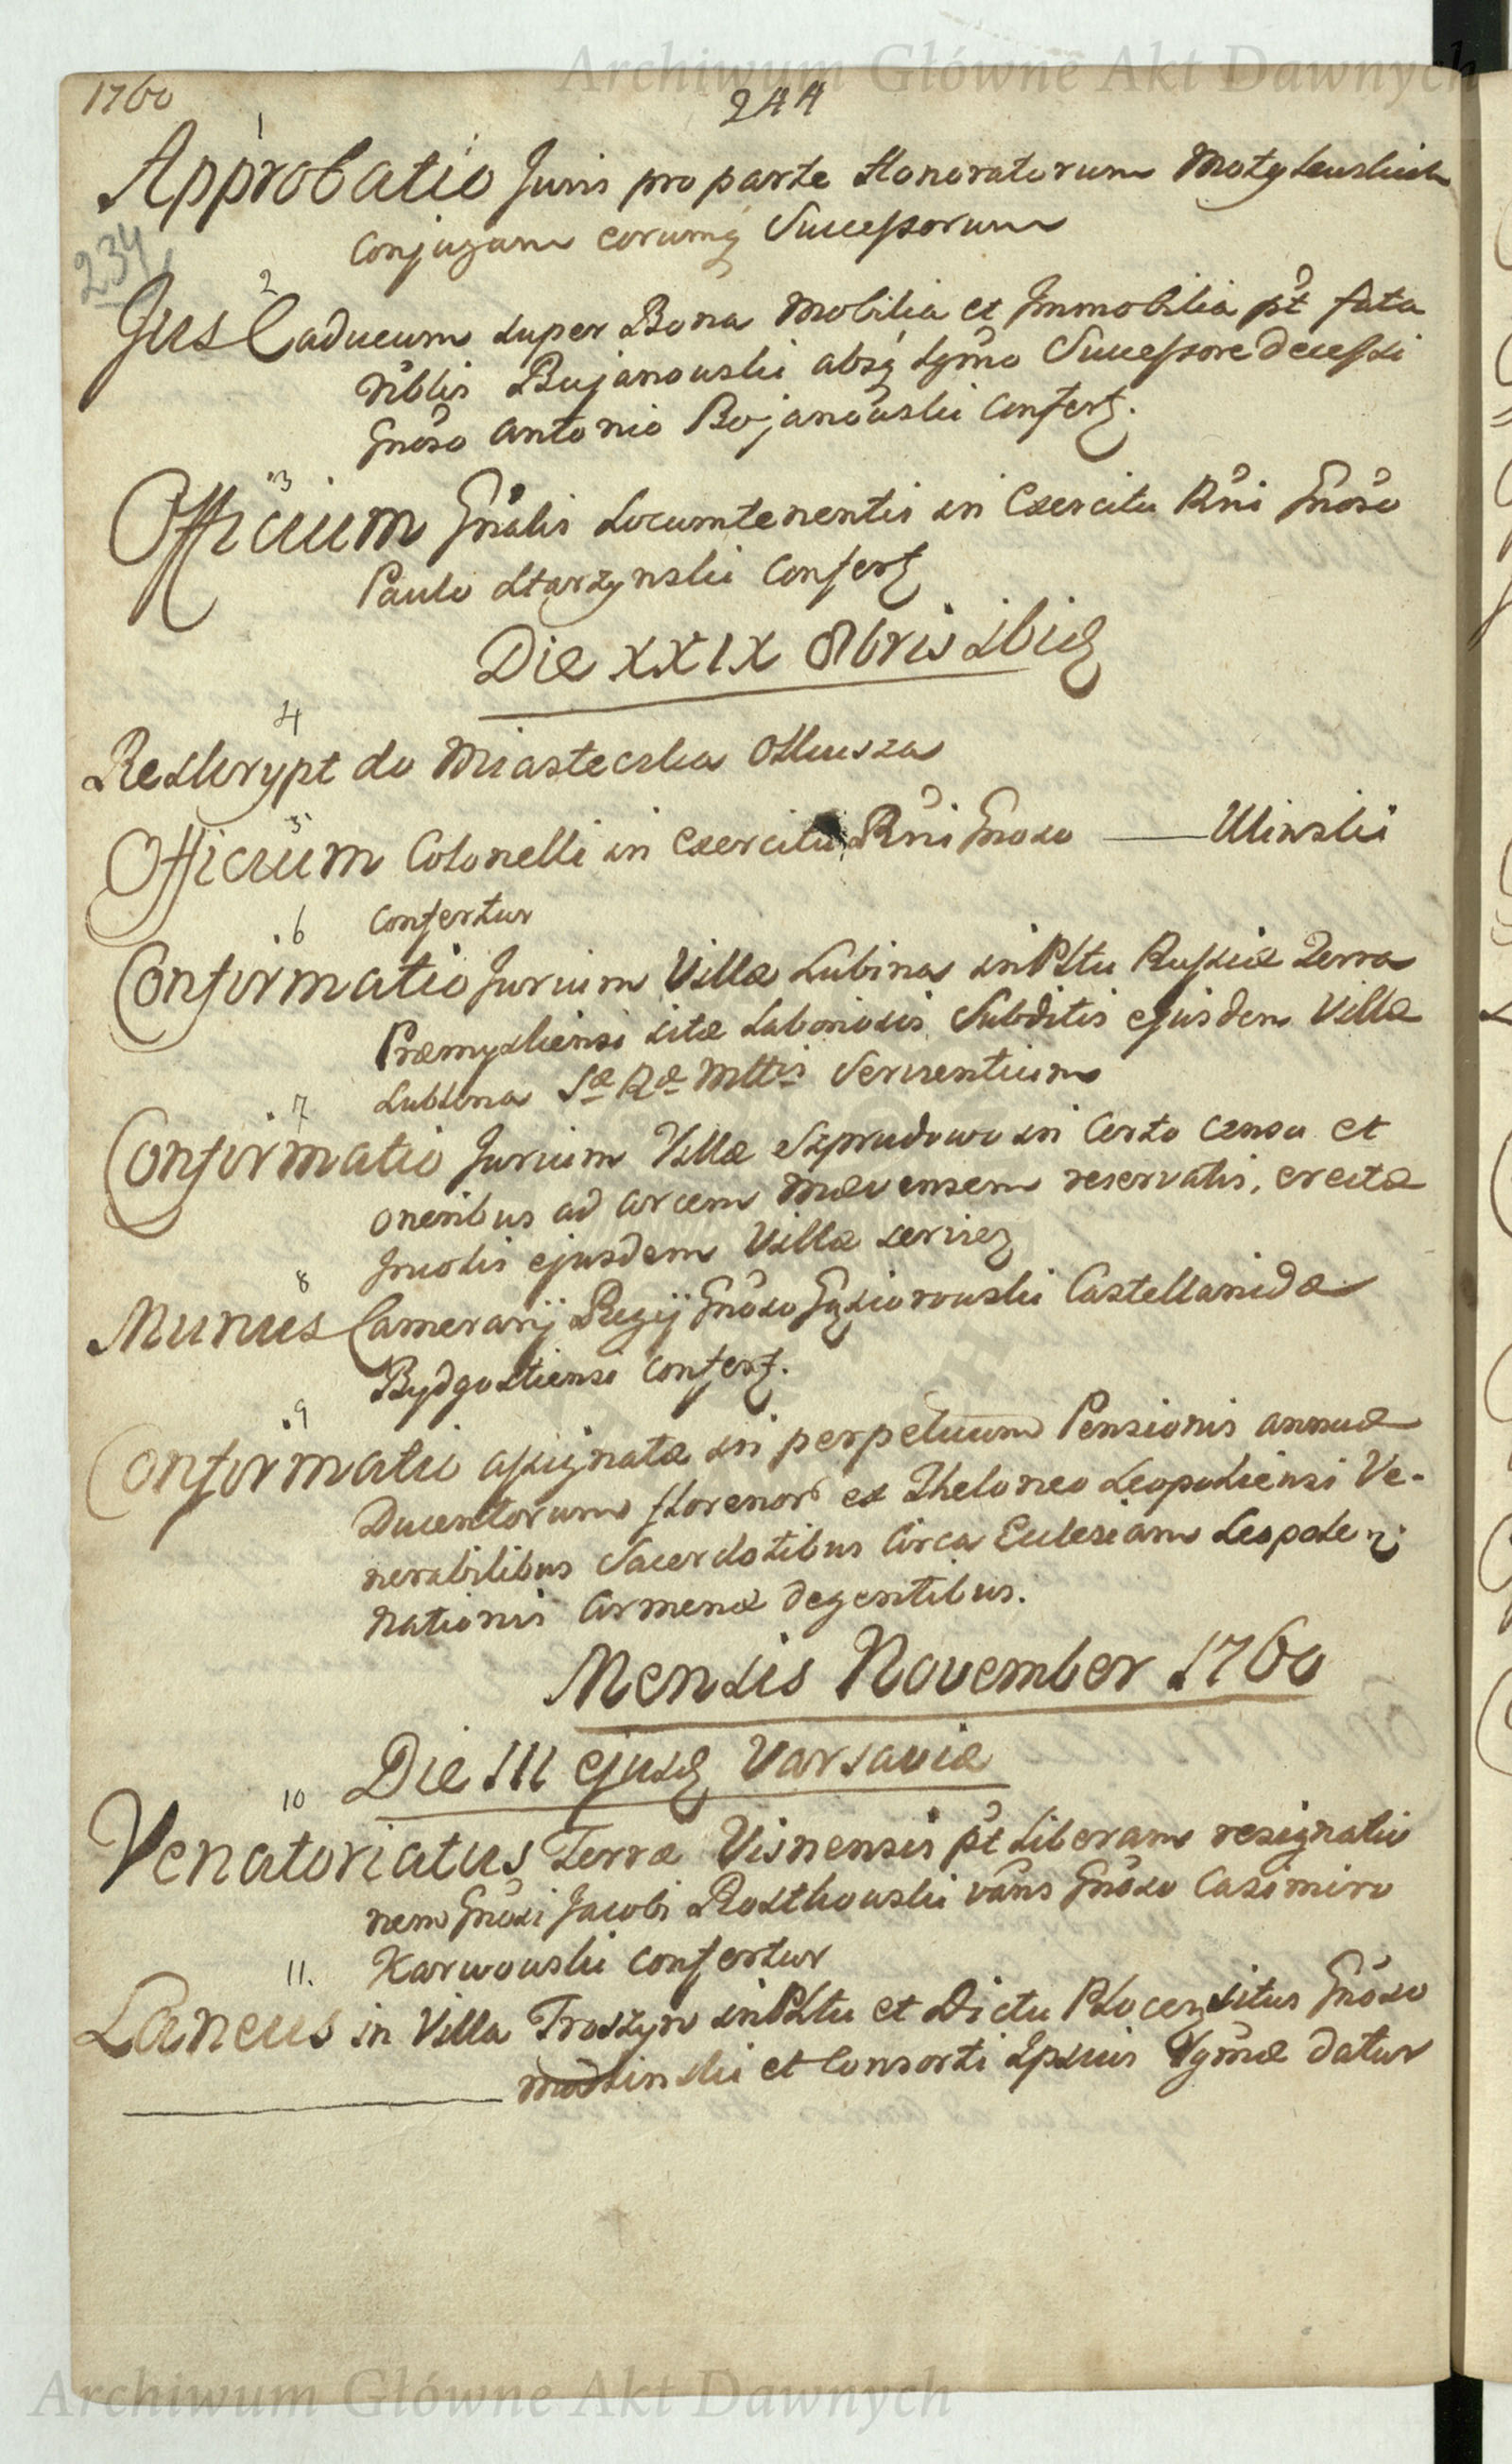 Archiwum Główne Akt Dawnych
1760
244
1
Approbatio Juris pro parte Honoratorum
Conjugum eorumq Successorum
234
2
Jus Caducum super Bona Mobilia et Immobilia pt fata
nblis Bujanowski absq lgmo Successore decessi
Gnoso Antonio Bojanowski Confert.
3
Officium Gnalis Locumtenentis in Exercitu Rni Gnoso
Paulo Starzynski Confert
Die XXIX 8bris ibid
4
Reskrypt do Miasteczka Olkusza
5
Officium Colonelli in Exercitu Rni Gnoso — Ulinski
Confertur
6
Confirmatio Jurium Villæ Lubina in Pltu Russiæ Terra
Præmysliensi sitæ Laboriosis Subditis ejusdem Villæ
Lubina Sæ Ræ Mttis Servientium
7
Confirmatio Jurium Villæ Szprudowo in Certo Censu et
oneribus ad arcem Mævensem reservatis, erectæ
Incolis ejusdem Villæ servien
8
Munus Camerarij Regij Gnoso Gąsiorowski Castellanidæ
Bydgostiensi Confert.
9
Confirmatio assignatæ in perpetuum Pensionis annuæ
Ducentorum florenor ex Theloneo Leopoliensi Ve-
nerabilibus Sacerdotibus Circa Ecclesiam Leopolien
nationis Armenæ degentibus.
Mensis November 1760
Die III ejusd Varsaviæ
10
Venatoriatus Terræ Visnensis pt Liberam resignatio
nem Gnosi Jacobi Rostkowski vans Gnoso Casimiro
Karwowski Confertur
11.
Laneus in Villa Troszyn in Pltu et Dictu Plocen situs Gnoso
Modlinski et Consorti Ipsius lgmæ datur
Archiwum Główne Akt Dawnych